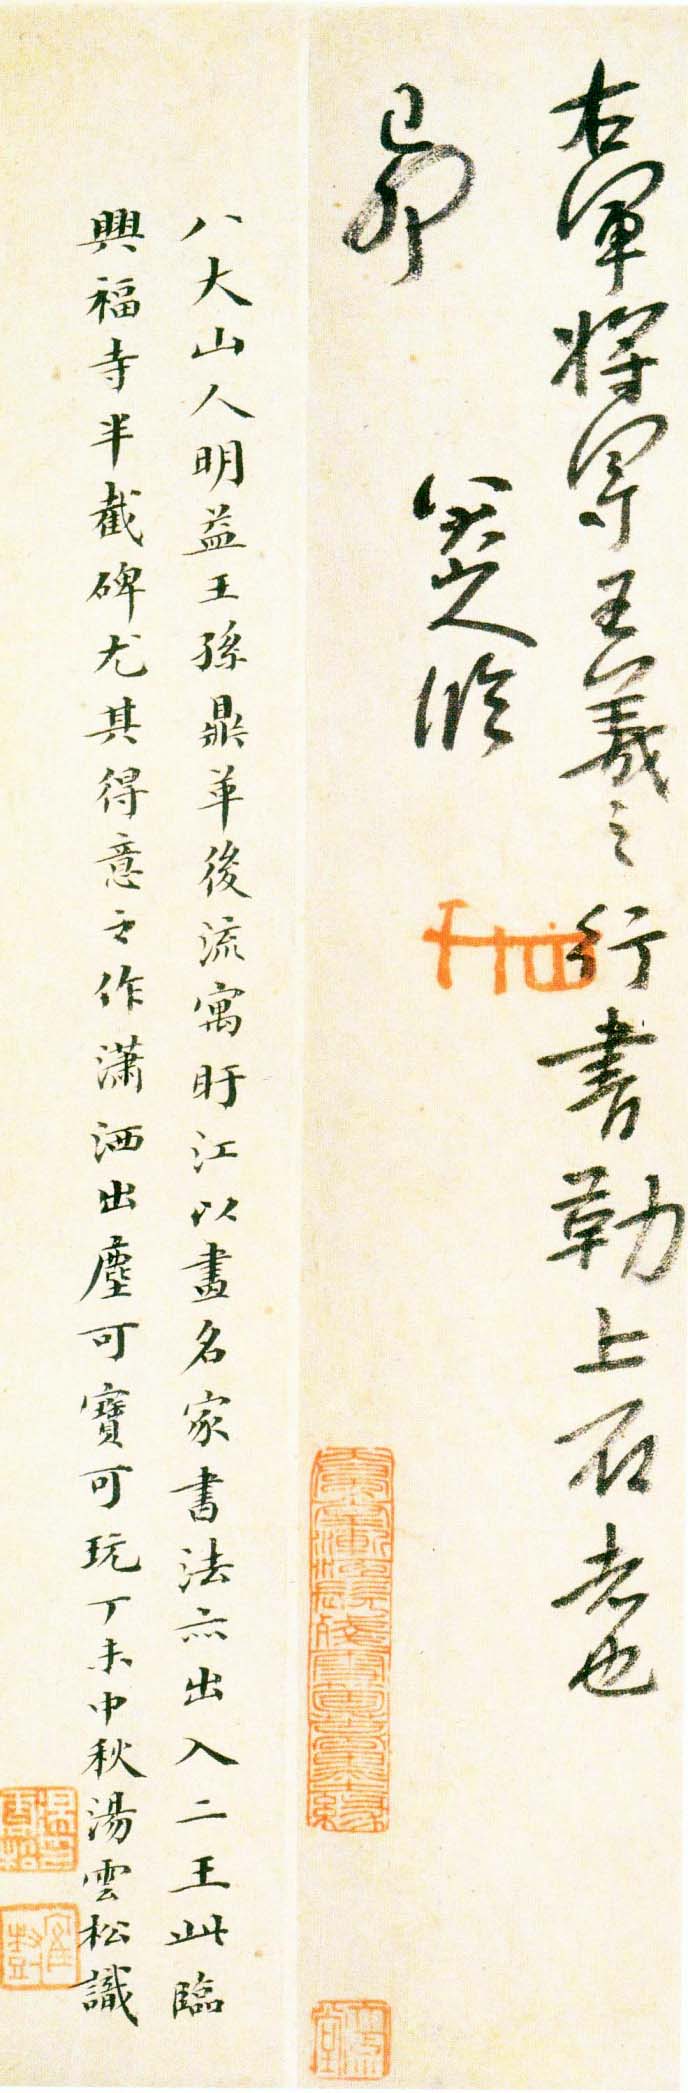 右軍將軍王羲之行書勒上石者也
己卯
八大山人臨
八大山人明益王孫鼎革後流寓盱江以畫名家書法亦出入二王此臨
興福寺半截碑尤其得意之作瀟洒出塵可寶可玩丁未中秋湯雲松識